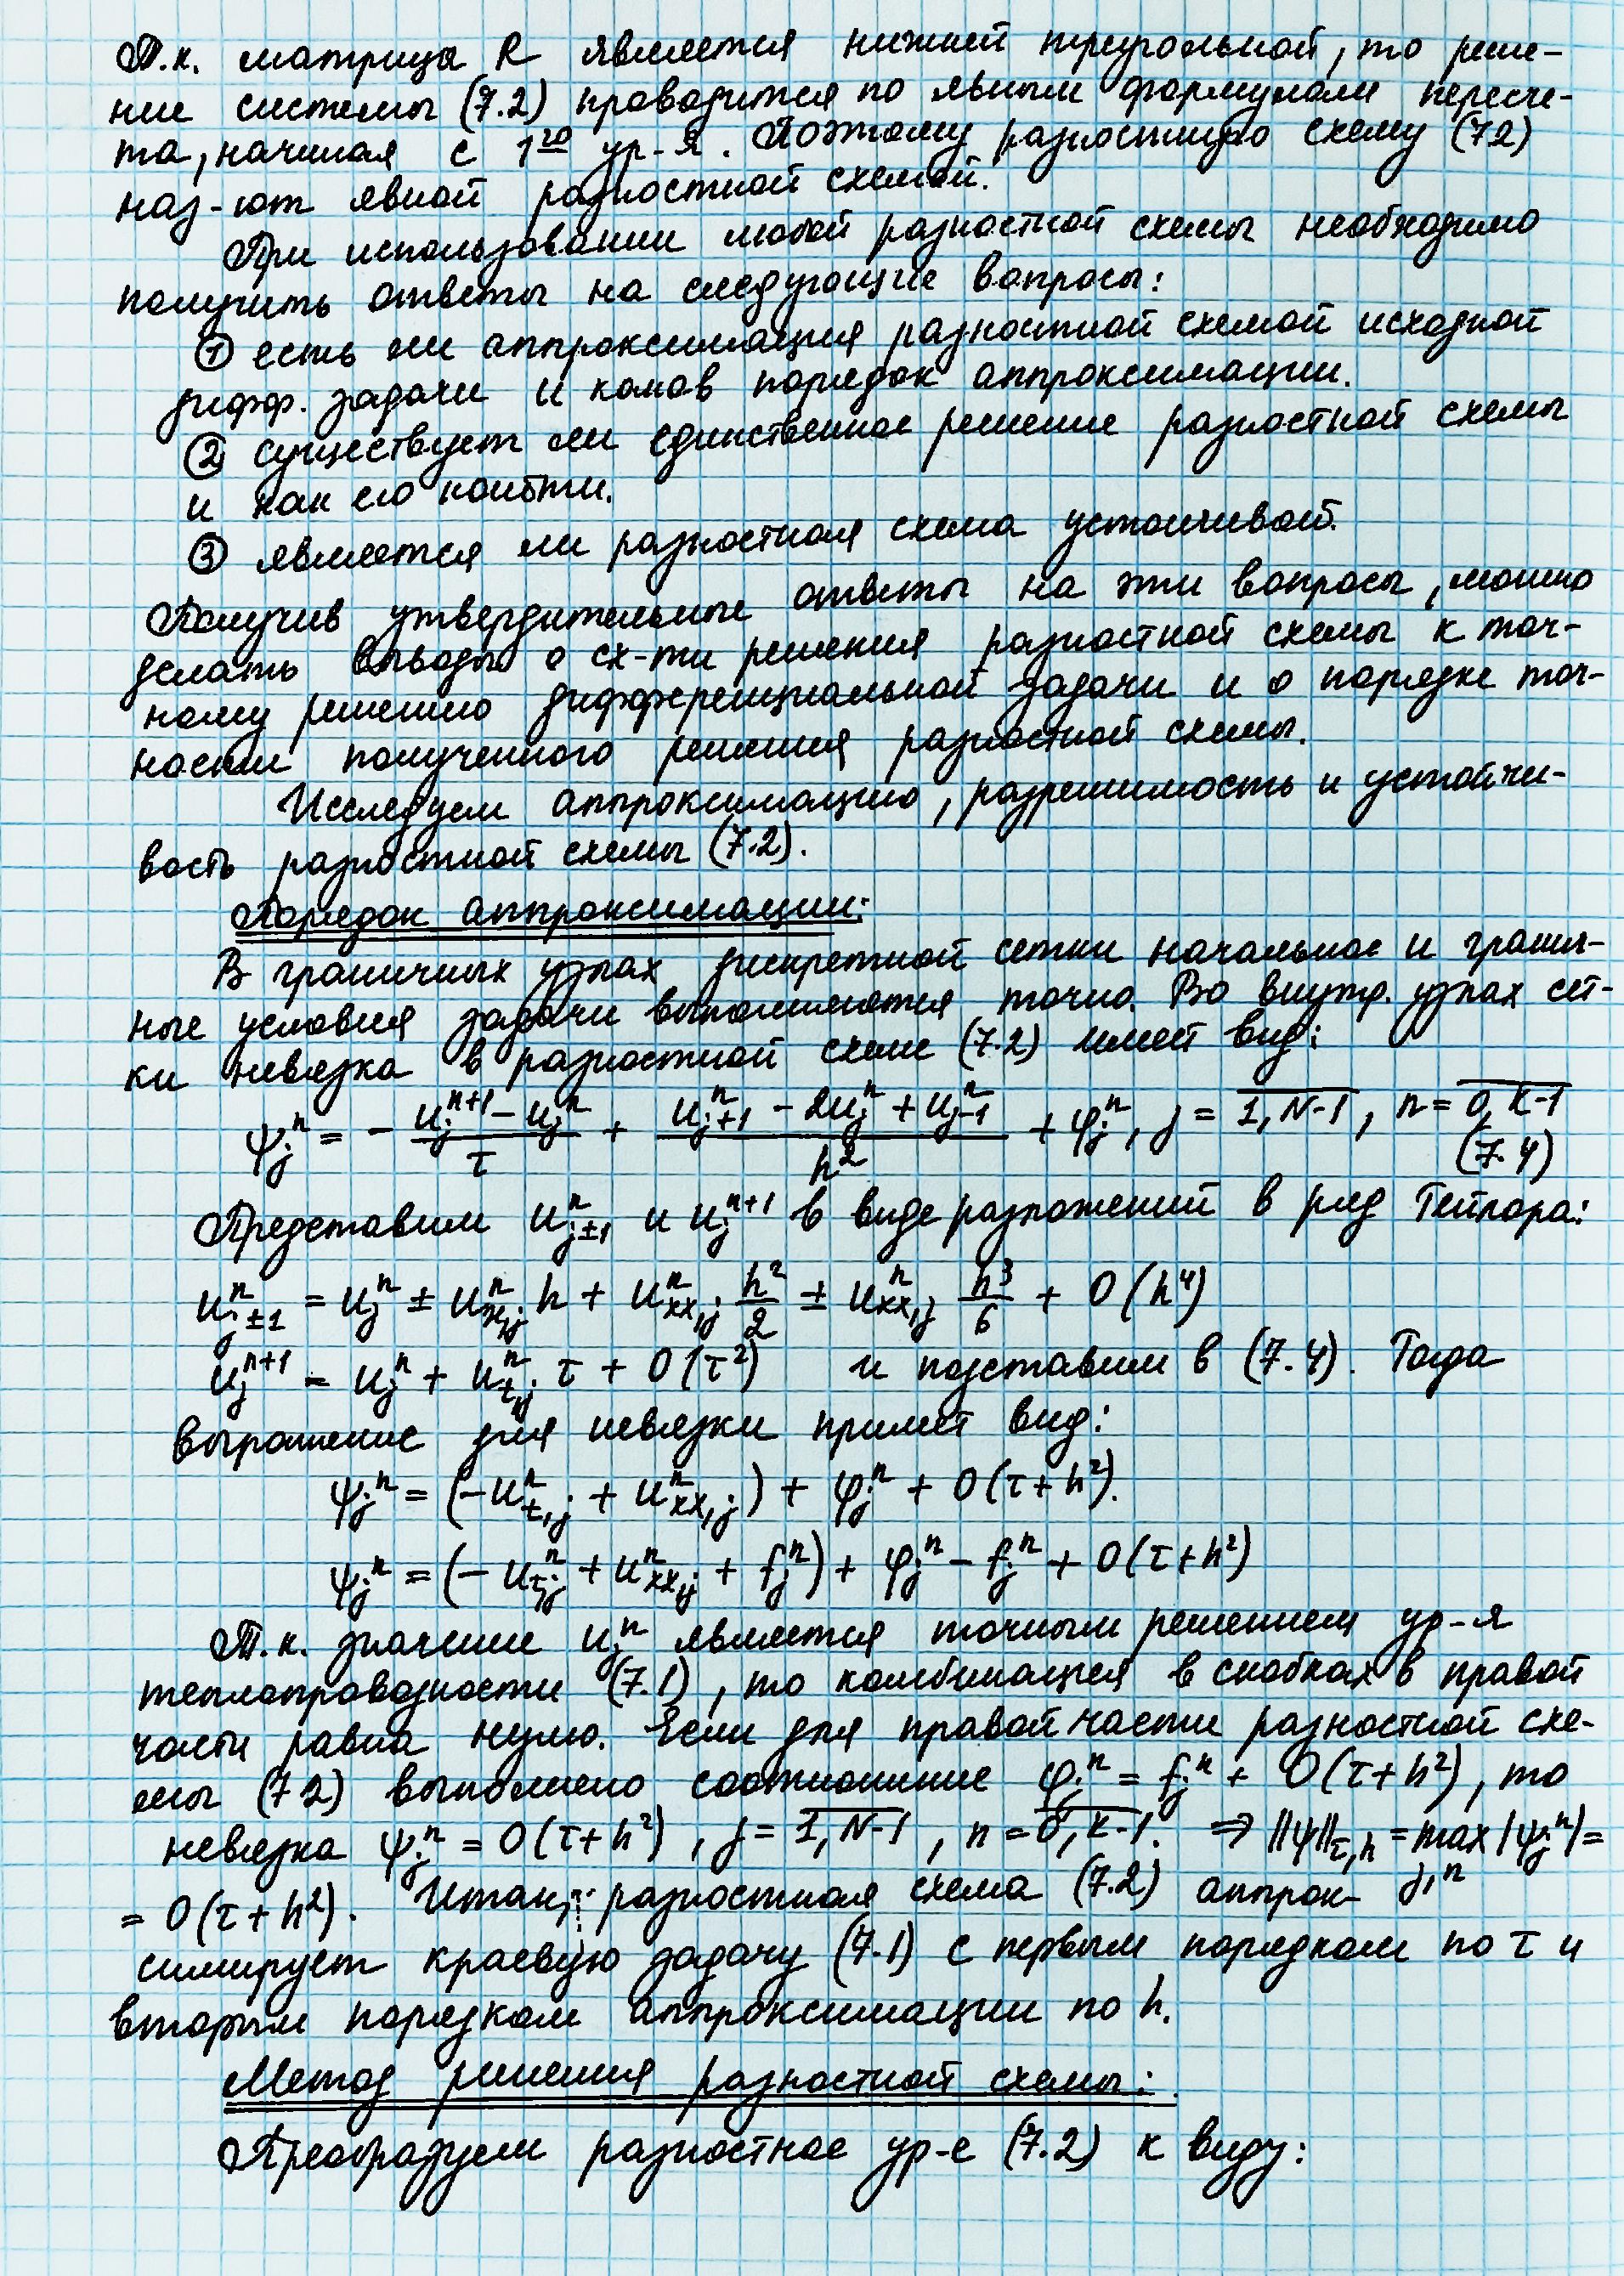 Т.к. матрица R является нижней треугольной, то реше-
ние системы (7.2) проводится по явным формулам пересче-
та, начиная с 1го ур-я. Поэтому разностную схему (7.2)
наз-ют явной разностной схемой.
При использовании любой разностной схемы необходимо
получить ответы на следующие вопросы:
① есть ли аппроксимация разностной схемой исходной
дифф. задачи и каков порядок аппроксимации.
② существует ли единственное решение разностной схемы
и как его найти.
③ является ли разностная схема устойчивой.
Получив утвердительные ответы на эти вопросы, можно
делать выводы о сх-ти решения разностной схемы к точ-
ному решению дифференциальной задачи и о порядке точ-
ности полученного решения разностной схемы.
Исследуем аппроксимацию, разрешимость и устойчи-
вость разностной схемы (7.2).
Порядок аппроксимации:
В граничных узлах дискретной сетки начальное и гранич-
ные условия задачи выполняются точно. Во внутр. узлах сет-
ки невязка в разностной схеме (7.2) имеет вид:
ψ_j^n = - (u_j^{n+1} - u_j^n)/τ + (u_{j+1}^n - 2u_j^n + u_{j-1}^n)/h² + φ_j^n, j = \overline{1, N-1}, n = \overline{0, K-1}
(7.4)
Представим u_{j±1}^n и u_j^{n+1} в виде разложений в ряд Тейлора:
u_{j±1}^n = u_j^n ± u_{x,j}^n h + u_{xx,j}^n h²/2 ± u_{xx,j}^n h³/6 + O(h⁴)
u_j^{n+1} = u_j^n + u_{t,j}^n τ + O(τ²) и подставим в (7.4). Тогда
выражение для невязки примет вид:
ψ_j^n = (-u_{t,j}^n + u_{xx,j}^n) + φ_j^n + O(τ+h²).
ψ_j^n = (-u_{t,j}^n + u_{xx,j}^n + f_j^n) + φ_j^n - f_j^n + O(τ+h²)
Т.к. значение u_j^n является точным решением ур-я
теплопроводности (7.1), то комбинация в скобках в правой
части равна нулю. Если для правой части разностной схе-
мы (7.2) выполнено соотношение φ_j^n = f_j^n + O(τ+h²), то
невязка ψ_j^n = O(τ+h²), j = \overline{1, N-1}, n = \overline{0, K-1}. ⇒ ||ψ||_{τ,h} = max_{j,n} |ψ_j^n| =
= O(τ+h²). Итак, разностная схема (7.2) аппрок-
симирует краевую задачу (7.1) с первым порядком по τ и
вторым порядком аппроксимации по h.
Метод решения разностной схемы:
Преобразуем разностное ур-е (7.2) к виду: